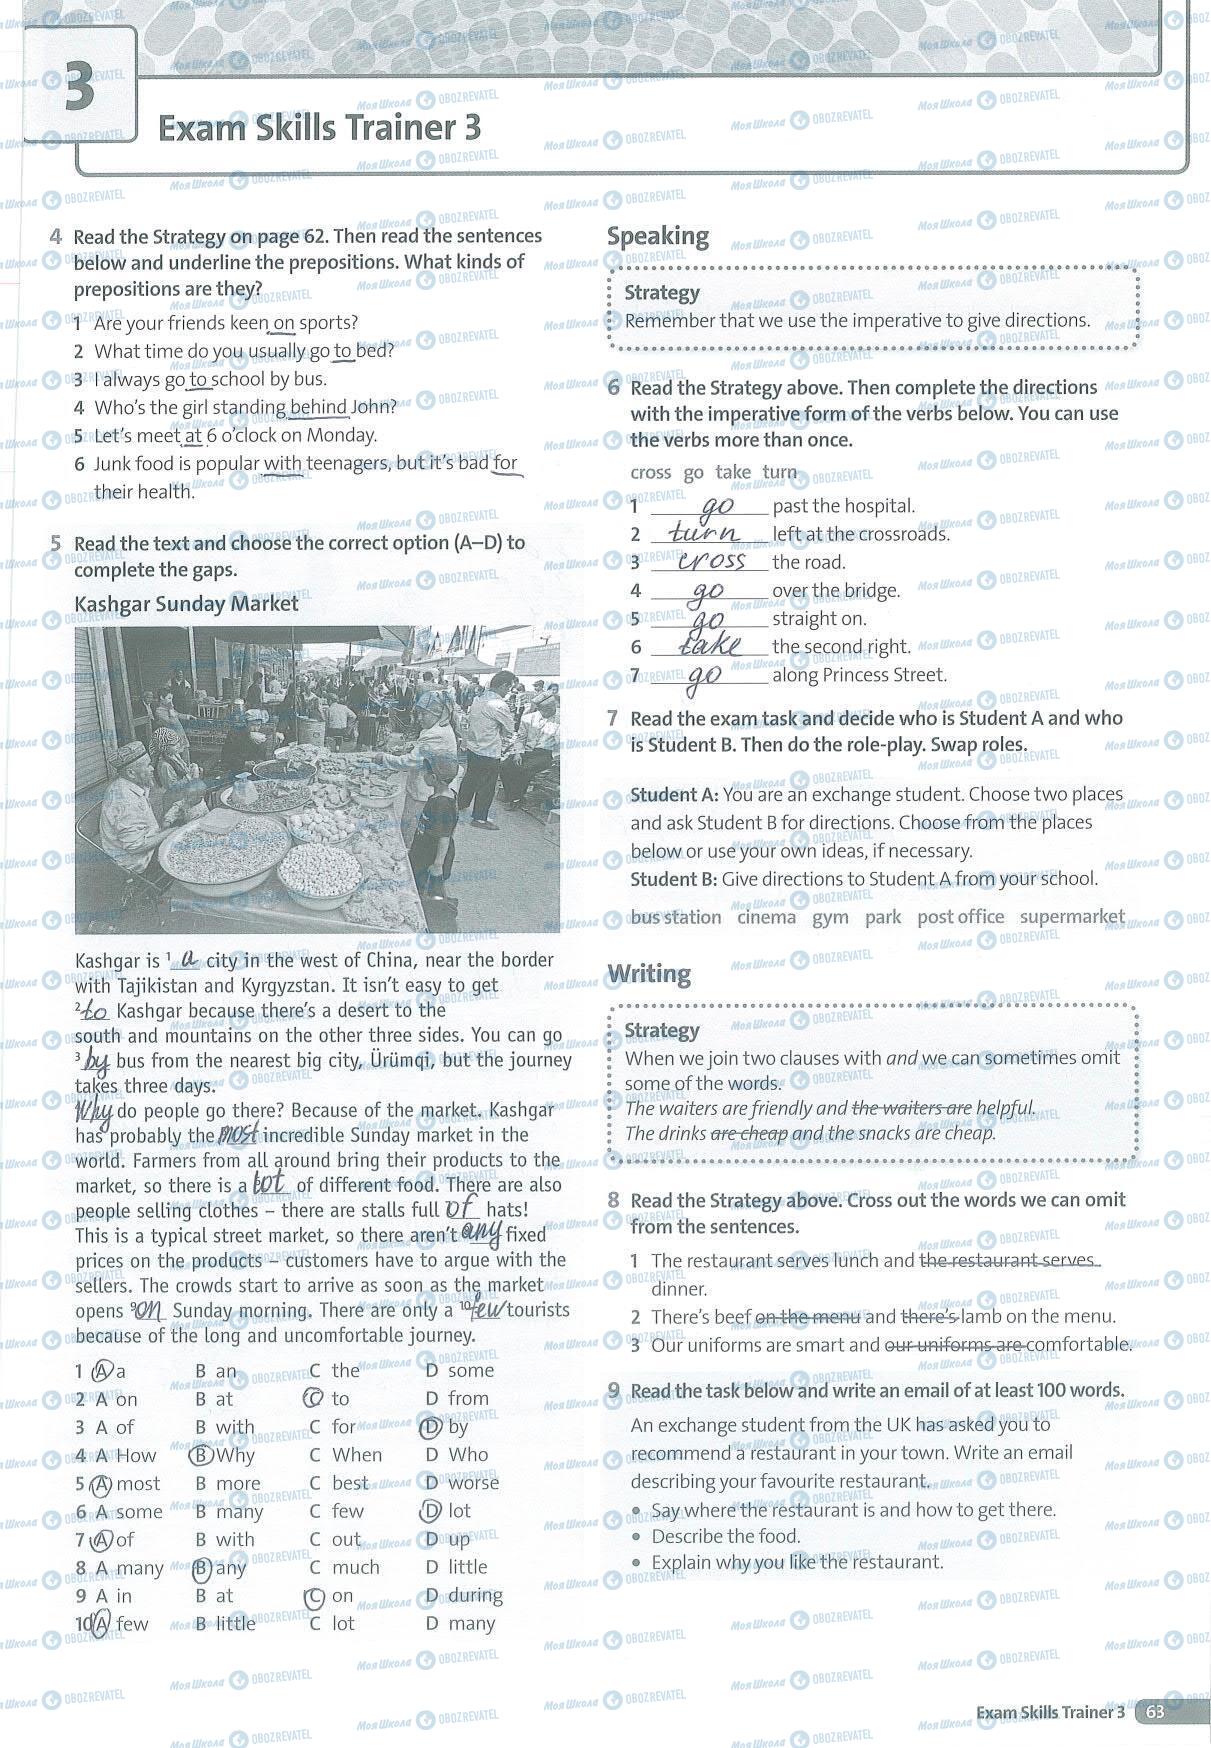 3
Exam Skills Trainer 3
4 Read the Strategy on page 62. Then read the sentences
below and underline the prepositions. What kinds of
prepositions are they?
1 Are your friends keen on sports?
2 What time do you usually go to bed?
3 I always go to school by bus.
4 Who's the girl standing behind John?
5 Let's meet at 6 o'clock on Monday.
6 Junk food is popular with teenagers, but it's bad for
their health.
5 Read the text and choose the correct option (A–D) to
complete the gaps.
Kashgar Sunday Market
Kashgar is 1 a city in the west of China, near the border
with Tajikistan and Kyrgyzstan. It isn't easy to get
2 to Kashgar because there's a desert to the
south and mountains on the other three sides. You can go
3 by bus from the nearest big city, Ürümqi, but the journey
takes three days.
Why do people go there? Because of the market. Kashgar
has probably the most incredible Sunday market in the
world. Farmers from all around bring their products to the
market, so there is a lot of different food. There are also
people selling clothes – there are stalls full of hats!
This is a typical street market, so there aren't any fixed
prices on the products – customers have to argue with the
sellers. The crowds start to arrive as soon as the market
opens 9 on Sunday morning. There are only a 10 few tourists
because of the long and uncomfortable journey.
1 A a B an C the D some
2 A on B at C to D from
3 A of B with C for D by
4 A How B Why C When D Who
5 A most B more C best D worse
6 A some B many C few D lot
7 A of B with C out D up
8 A many B any C much D little
9 A in B at C on D during
10 A few B little C lot D many
Speaking
Strategy
Remember that we use the imperative to give directions.
6 Read the Strategy above. Then complete the directions
with the imperative form of the verbs below. You can use
the verbs more than once.
cross go take turn
1 go past the hospital.
2 turn left at the crossroads.
3 cross the road.
4 go over the bridge.
5 go straight on.
6 take the second right.
7 go along Princess Street.
7 Read the exam task and decide who is Student A and who
is Student B. Then do the role-play. Swap roles.
Student A: You are an exchange student. Choose two places
and ask Student B for directions. Choose from the places
below or use your own ideas, if necessary.
Student B: Give directions to Student A from your school.
bus station cinema gym park post office supermarket
Writing
Strategy
When we join two clauses with and we can sometimes omit
some of the words.
The waiters are friendly and the waiters are helpful.
The drinks are cheap and the snacks are cheap.
8 Read the Strategy above. Cross out the words we can omit
from the sentences.
1 The restaurant serves lunch and the restaurant serves
dinner.
2 There's beef on the menu and there's lamb on the menu.
3 Our uniforms are smart and our uniforms are comfortable.
9 Read the task below and write an email of at least 100 words.
An exchange student from the UK has asked you to
recommend a restaurant in your town. Write an email
describing your favourite restaurant.
• Say where the restaurant is and how to get there.
• Describe the food.
• Explain why you like the restaurant.
Exam Skills Trainer 3 63
МояШкола OBOZREVATEL